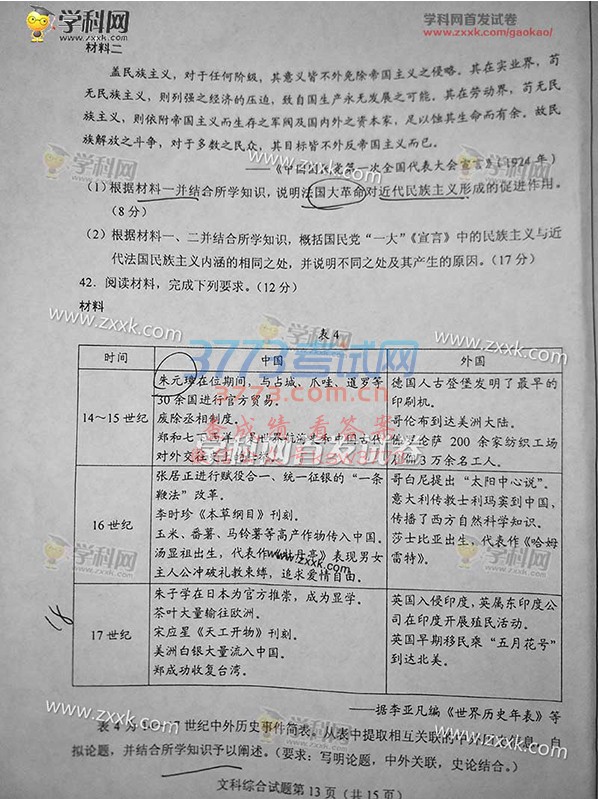 学科网
www.zxxk.com
学科网首发试卷
www.zxxk.com/gaokao/
材料二
盖民族主义，对于任何阶级，其意义皆不外免除帝国主义之侵略。其在实业界，苟
无民族主义，则列强之经济的压迫，致自国生产永无发展之可能。其在劳动界，苟无民
族主义，则依附帝国主义而生存之军阀及国内外之资本家，足以蚀其生命而有余。故民
族解放之斗争，对于多数之民众，其目标皆不外反帝国主义而已。
——《中国国民党第一次全国代表大会宣言》（1924 年）
（1）根据材料一并结合所学知识，说明法国大革命对近代民族主义形成的促进作用。
（8 分）
（2）根据材料一、二并结合所学知识，概括国民党“一大”《宣言》中的民族主义与近
代法国民族主义内涵的相同之处，并说明不同之处及其产生的原因。（17 分）
42. 阅读材料，完成下列要求。（12 分）
材料
表 4
时间 中国 外国
14～15 世纪
朱元璋在位期间，与占城、爪哇、暹罗等
30 余国进行官方贸易。
废除丞相制度。
郑和七下西洋，是世界航海史和中国古代
对外交往史上的
德国人古登堡发明了最早的
印刷机。
哥伦布到达美洲大陆。
佛罗伦萨 200 余家纺织工场
3 万余名工人。
16 世纪
张居正进行赋役合一、统一征银的“一条
鞭法”改革。
李时珍《本草纲目》刊刻。
玉米、番薯、马铃薯等高产作物传入中国。
汤显祖出生，代表作《牡丹亭》表现男女
主人公冲破礼教束缚，追求爱情自由。
哥白尼提出“太阳中心说”。
意大利传教士利玛窦到中国，
传播了西方自然科学知识。
莎士比亚出生，代表作《哈姆
雷特》。
17 世纪
朱子学在日本为官方推崇，成为显学。
茶叶大量输往欧洲。
宋应星《天工开物》刊刻。
美洲白银大量流入中国。
郑成功收复台湾。
英国入侵印度，英属东印度公
司在印度开展殖民活动。
英国早期移民乘“五月花号”
到达北美。
——据李亚凡编《世界历史年表》等
表 4 为 14～17 世纪中外历史事件简表。从表中提取相互关联的中外历史信息，自
拟论题，并结合所学知识予以阐述。（要求：写明论题，中外关联，史论结合。）
文科综合试题第 13 页（共 15 页）
3773考试网
www.3773.com.cn
查成绩 看答案
学科网首发试卷